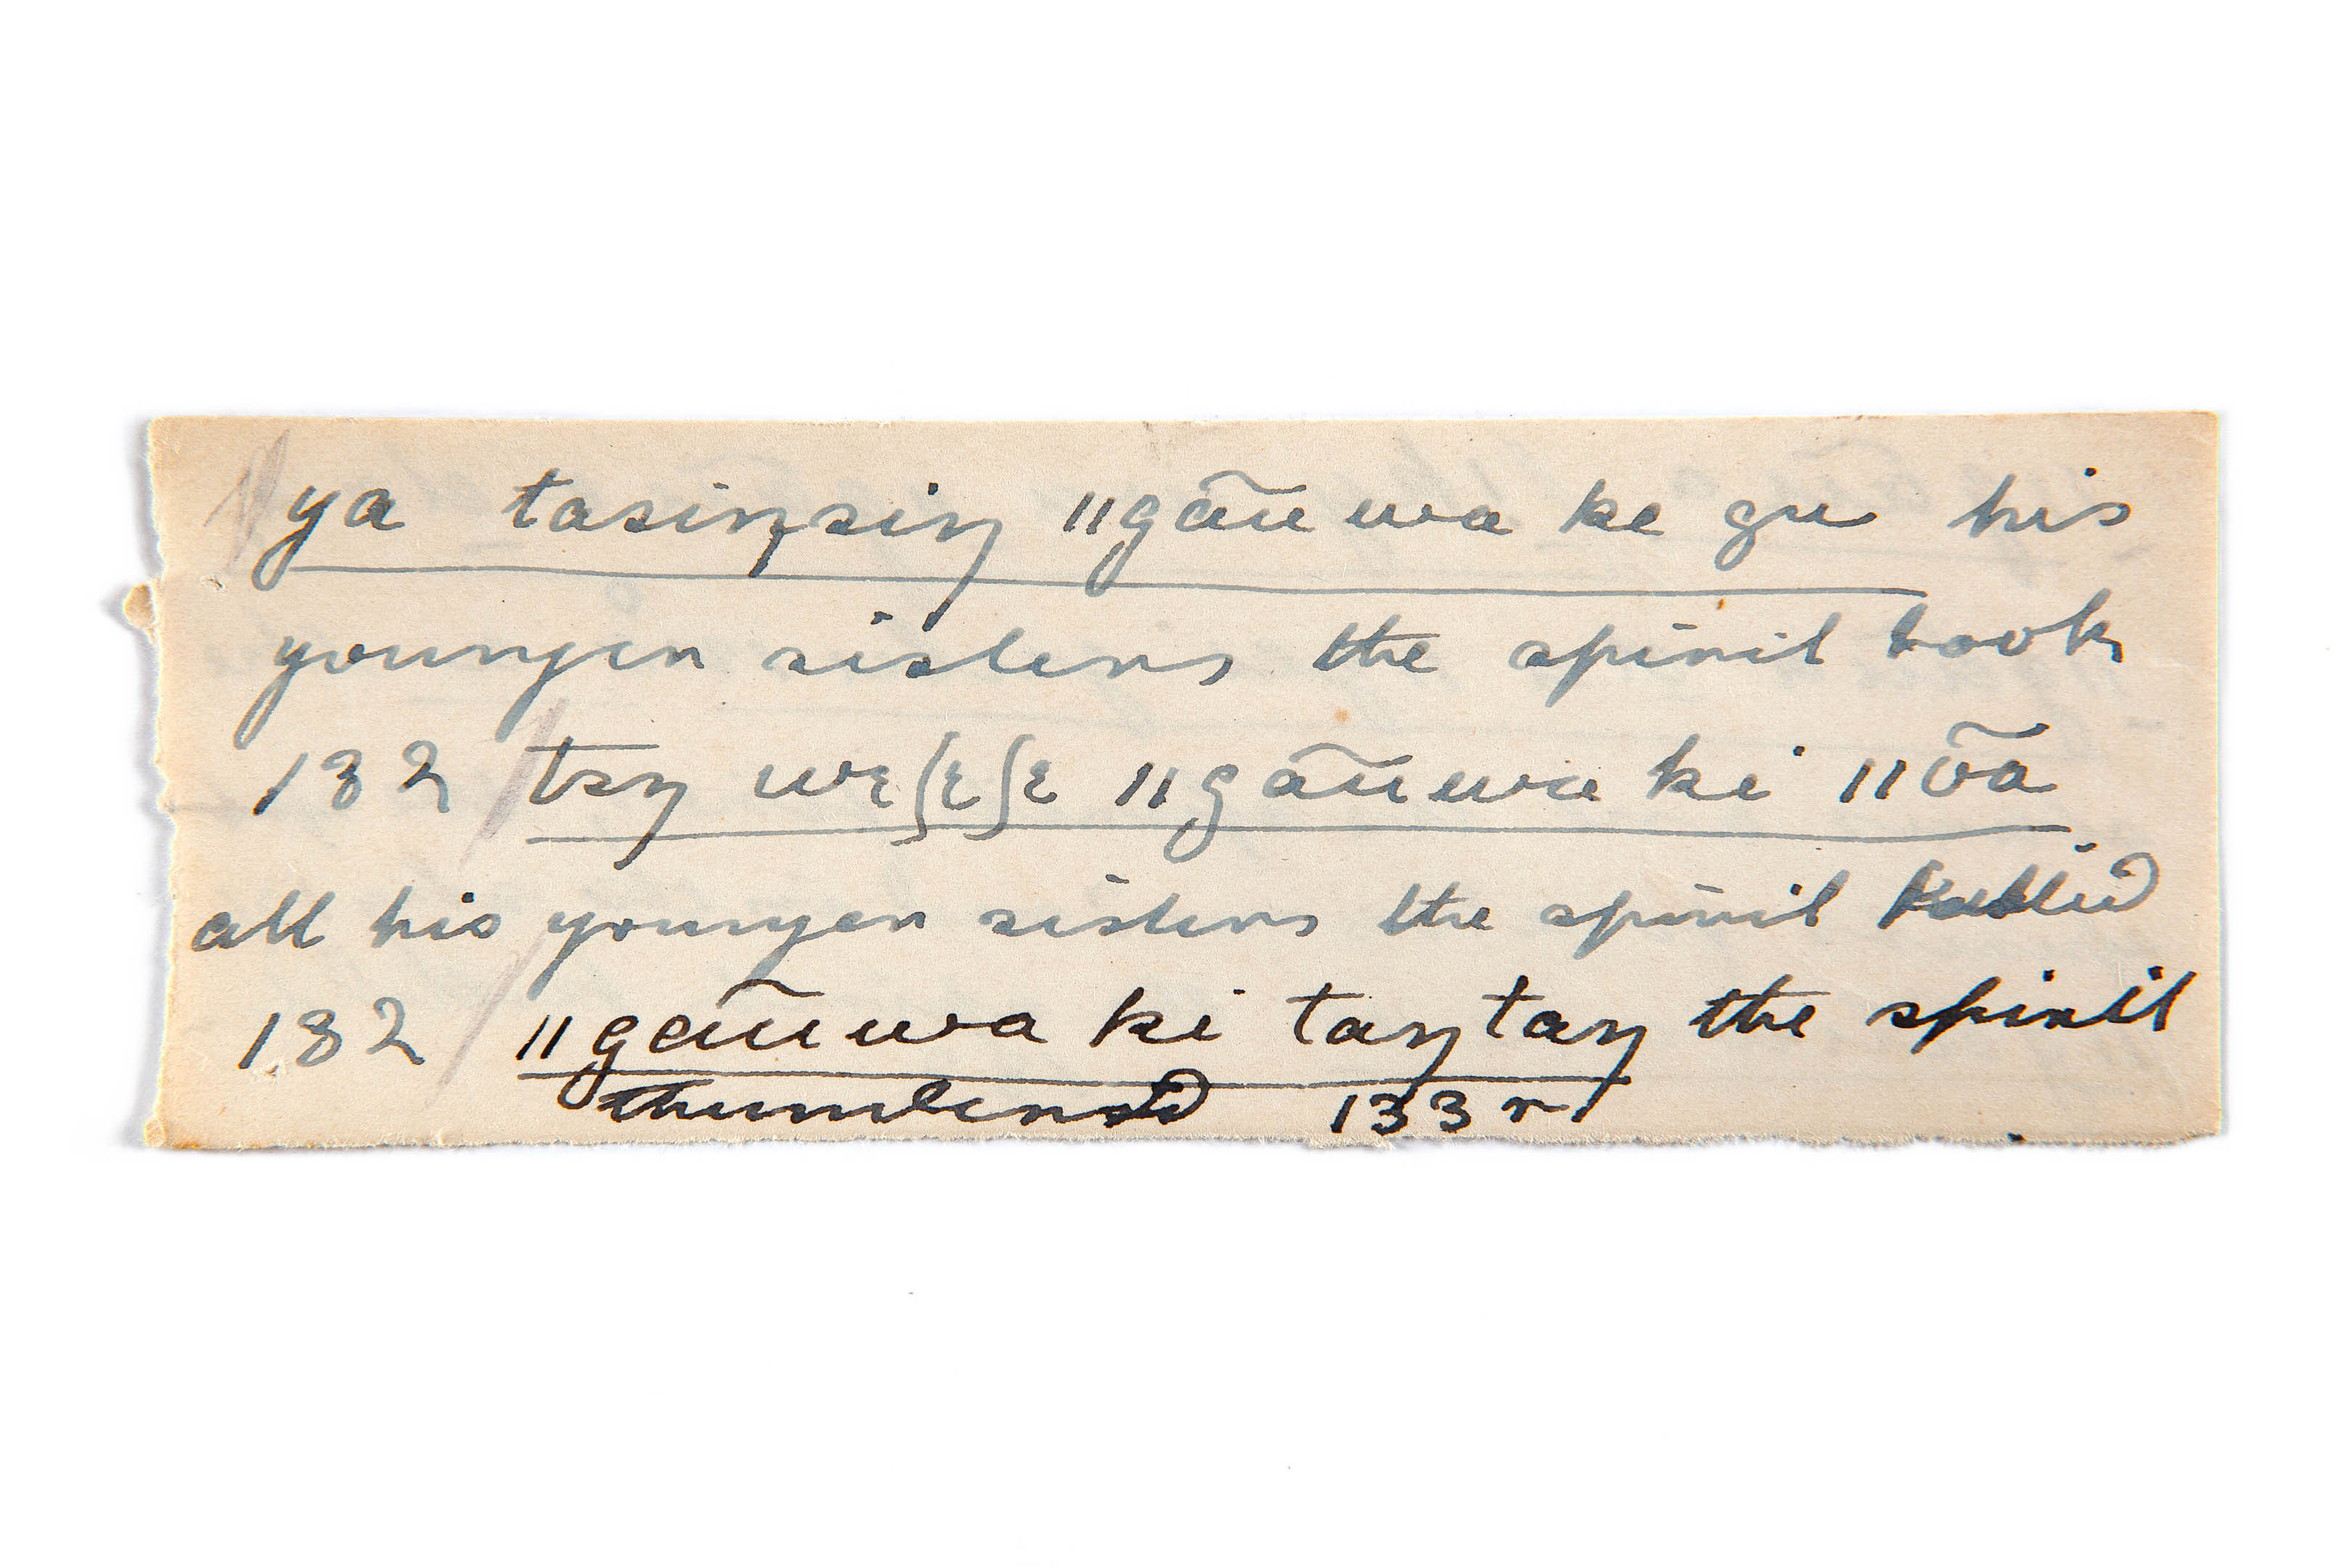 ya tasiŋsiŋ ǁgãũwa ke gu his
younger sisters the spirit took
132 tɛŋ wɛʃɛʃɛ ǁgãũwa ki ǁõã
all his younger sisters the spirit killed
132 ǁgãũwa ki taŋtaŋ the spirit
thundered 133r